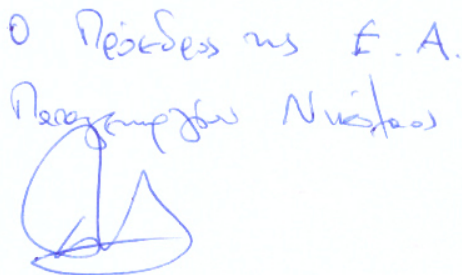 Ο Πρόεδρος της Ε.Α.
Παπαγεωργίου Νικόλαος